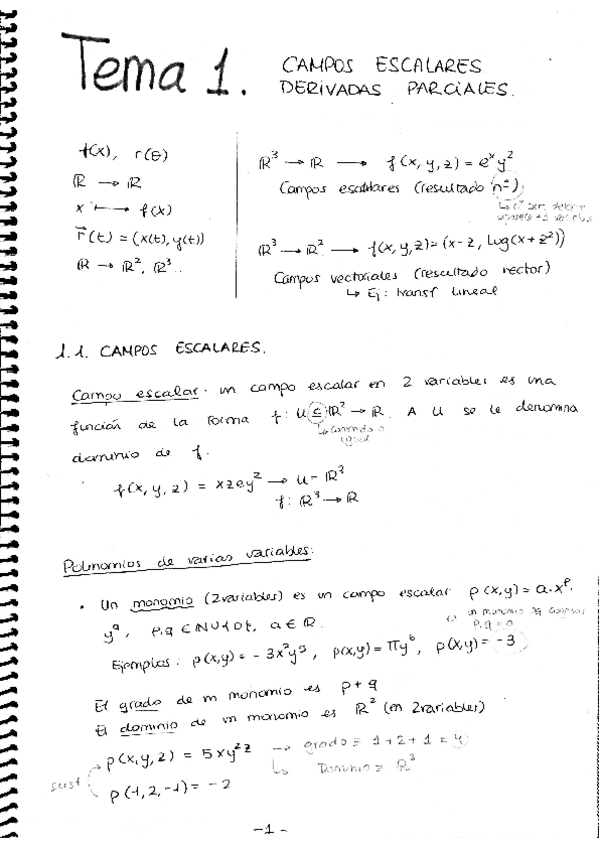 Tema 1. CAMPOS ESCALARES
DERIVADAS PARCIALES.
f(x), r(θ)
ℝ → ℝ
x ↦ f(x)
r⃗(t) = (x(t), y(t))
ℝ → ℝ², ℝ³...
ℝ³ → ℝ → f(x, y, z) = eˣy²
Campos escalares (resultado nº)
ℝ³ → ℝ² → f(x,y,z) = (x-z, log(x+z²))
Campos vectoriales (resultado vector)
↳ Ej: transf lineal
1.1. CAMPOS ESCALARES.
Campo escalar: un campo escalar en 2 variables es una
función de la forma f: U ⊆ ℝ² → ℝ. A U se le denomina
↳ contenido o
igual
dominio de f.
f(x, y, z) = xzey² → U = ℝ³
f: ℝ³ → ℝ
Polinomios de varias variables:
• Un monomio (2 variables) es un campo escalar p(x,y) = a·xᵖ·
yq, p,q ∈ ℕ∪{0}, a ∈ ℝ.
un monomio
p,q=0
Ejemplos: p(x,y) = -3x²y³, p(x,y) = πy⁶, p(x,y) = -3
El grado de un monomio es p+q
El dominio de un monomio es ℝ² (en 2 variables)
p(x,y,z) = 5xy²z → grado = 1+2+1 = 4
↳ Dominio = ℝ³
sust
p(-1,2,-1) = -2
-1-